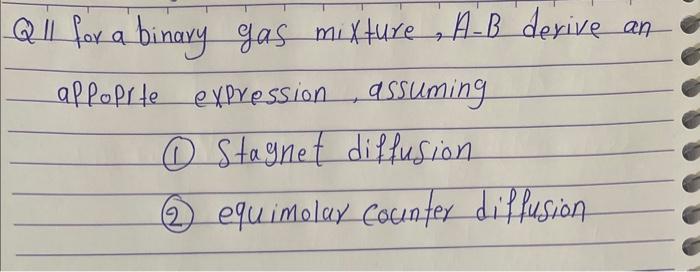 Q11 for a binary gas mixture, A-B derive an
appoprte expression, assuming
① Stagnet diffusion
② equimolar counter diffusion